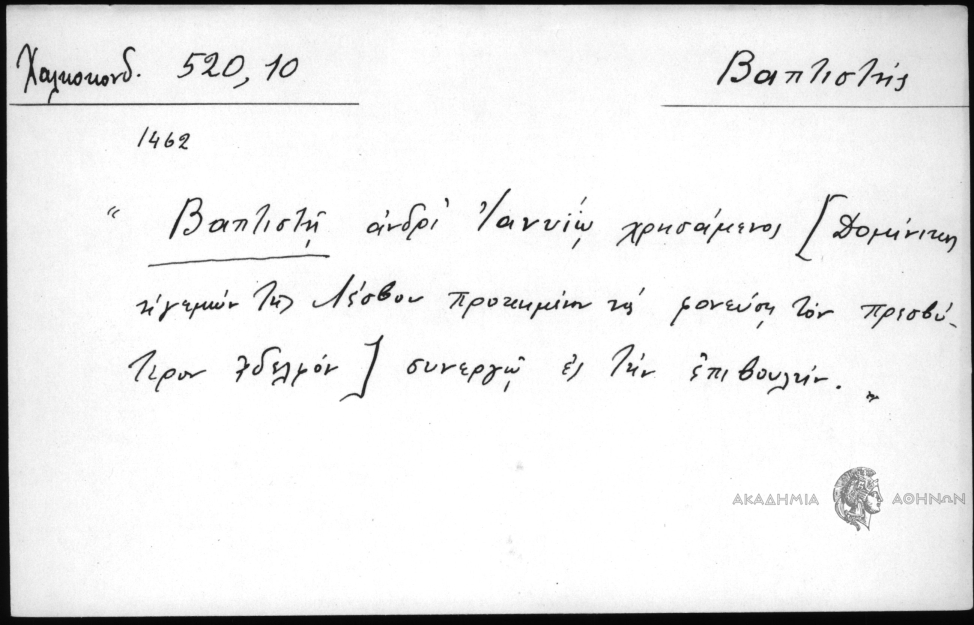 Χαλκοκονδ. 520,10
Βαπτιστής
1462
“ Βαπτιστῇ ἀνδρὶ Ἰαννυΐῳ χρησάμενος [Δομένικος
ἡγεμὼν τῆς Λέσβου προκειμένου νὰ φονεύσῃ τὸν πρεσβύ-
τερον ἀδελφόν] συνεργῷ ἐς τὴν ἐπιβουλήν. „
ΑΚΑΔΗΜΙΑ ΑΘΗΝΩΝ